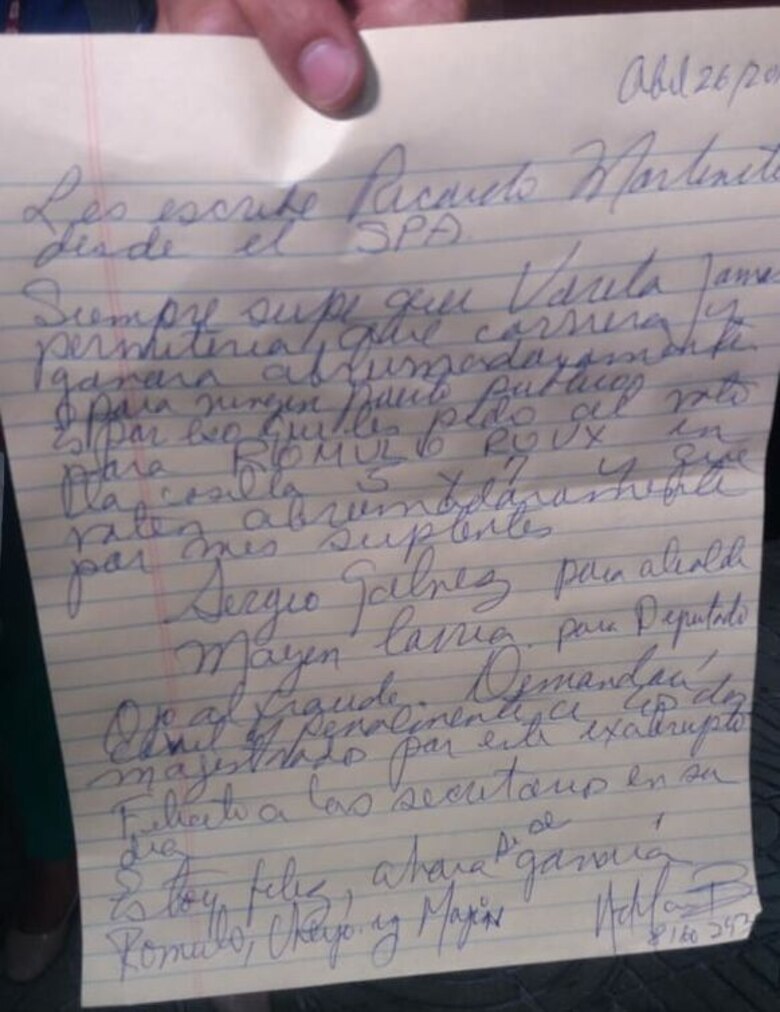 Abril 26/20
Les escribe Ricardo Martinelli
desde el SPA
Siempre supe que Varela jamas
permitiria que corriera y
ganara abrumadoramente
para ningun puesto publico
Es por eso que les pido el voto
para ROMULO ROUX en
la casilla 5 y 7 y que
voten abrumadoramente
por mis suplentes
Sergio Galvez para alcalde
Mayer para Diputado
Ojo al fraude. Demandaré
civil y penalmente a cada
magistrado por este exabrupto
Felicito a las secretarias en su
dia
Estoy feliz, ahora si se ganará
Romulo, y